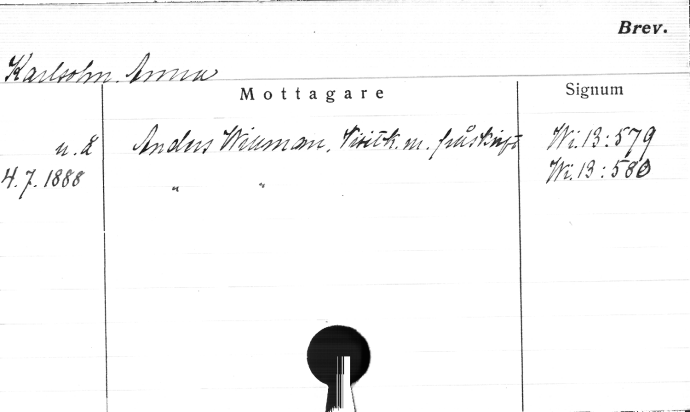 Brev.
Karlsohn Anna
Mottagare Signum
u. å Anders Wikman, Visitk. m. påskrift Wi. 13:579
4.7.1888 " " Wi. 13:580